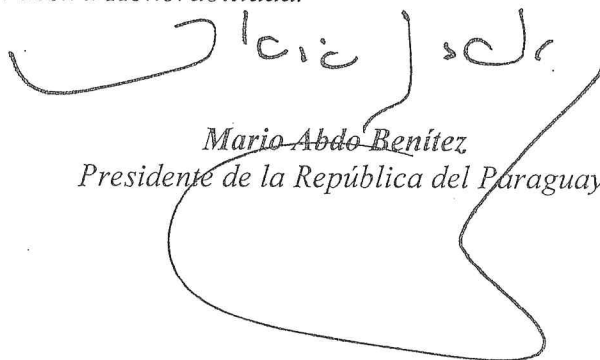 Mario Abdo Benítez
Presidente de la República del Paraguay